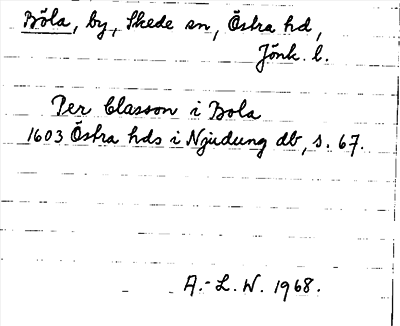 Böla, by, Skede sn, Östra hd,
Jönk. l.
Per Classon i Bola
1603 Östra hds i Njudung db, s. 67.
A.-L. W. 1968.